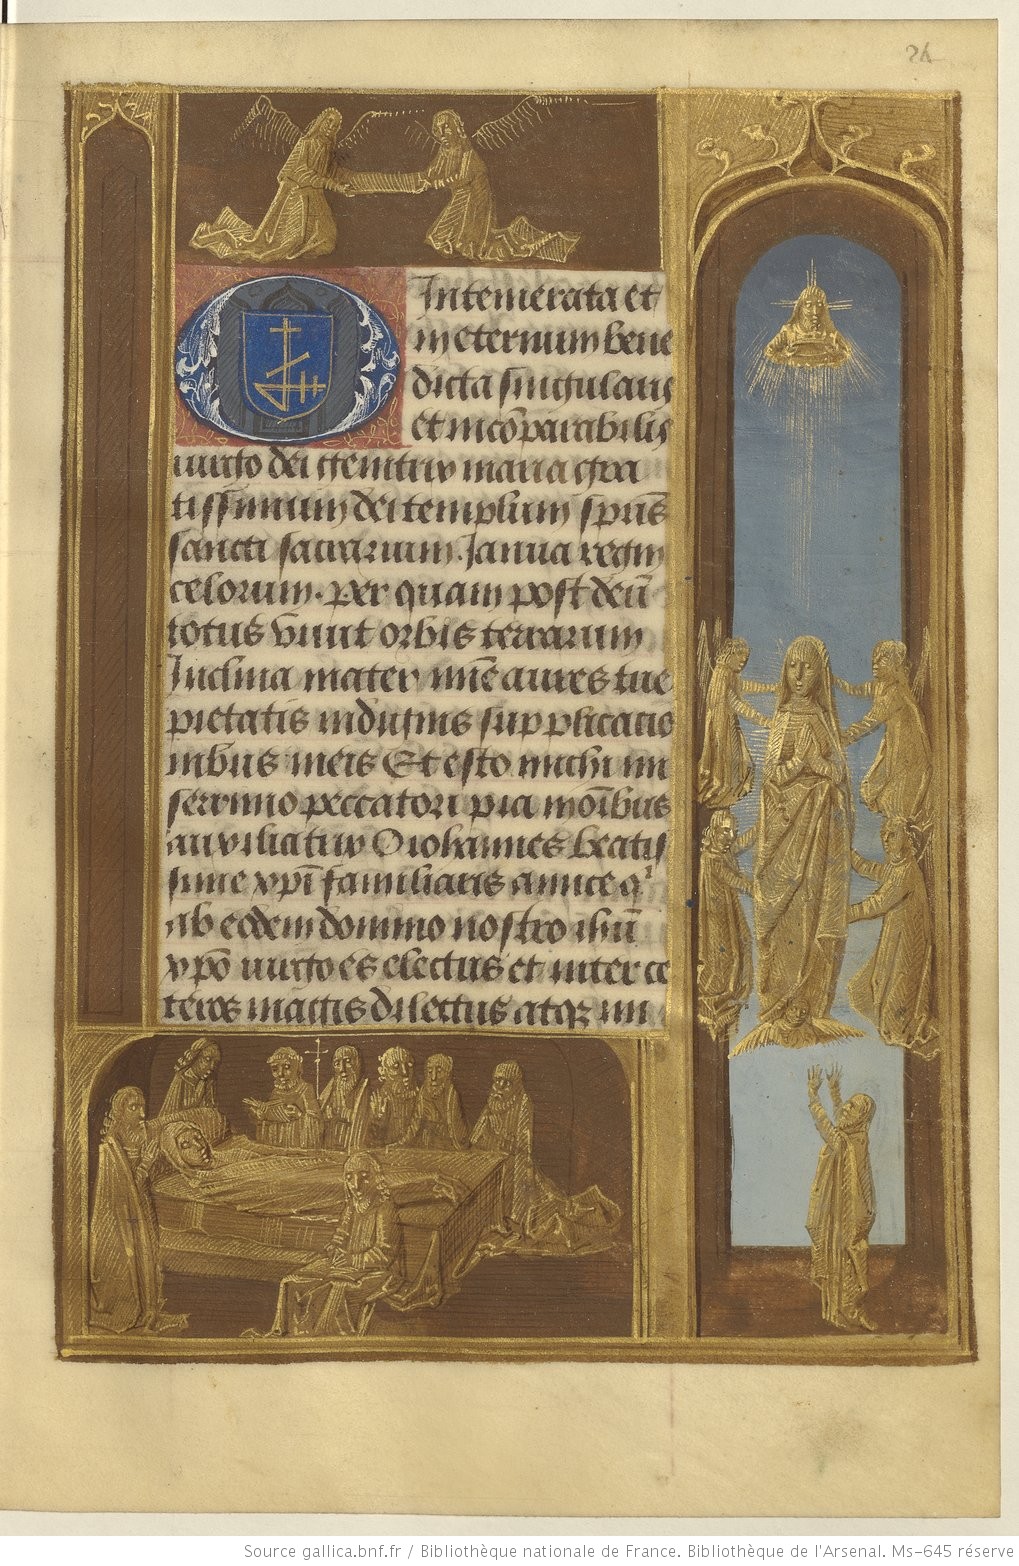 24
O Intemerata et
in eternum bene
dicta singularis
et incōparabilis
virgo dei genitrix maria gra
tissimum dei templum spūs
sancti sacrarium. Janua regni
celorum. per quam post deū
totus vivit orbis terrarum
Inclina mater mīe aures tue
pietatis indignis supplicatio
nibus meis Et esto michi mi
serrimo peccatori pia in oībus
auxiliatrix O iohannes beatis
sime xpī familiaris amice qⁱ
ab eodem domino nostro ihū
xpō virgo es electus et inter ce
teros magis dilectus atqꝫ in
Source gallica.bnf.fr / Bibliothèque nationale de France. Bibliothèque de l'Arsenal. Ms-645 réserve